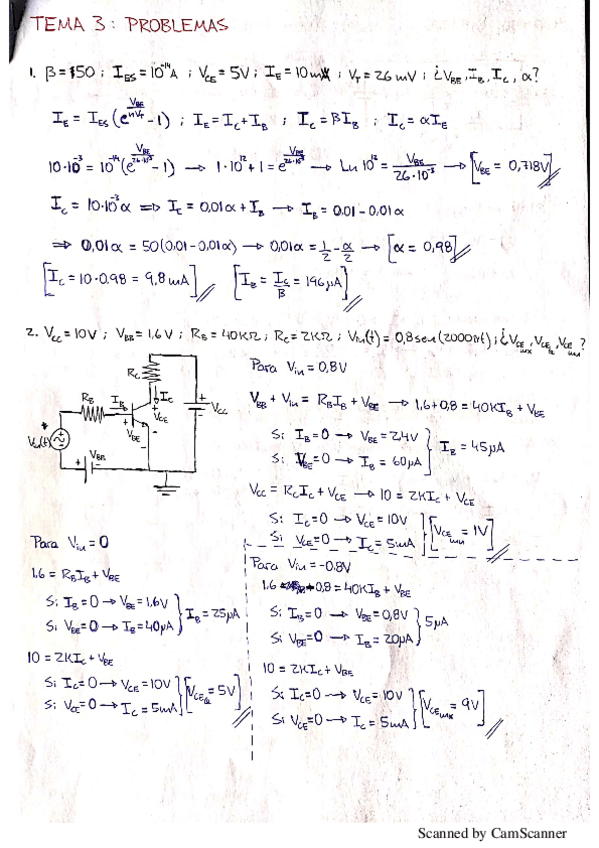 TEMA 3: PROBLEMAS
1. β=50 ; I_ES=10^-14 A ; V_CE=5V ; I_E=10mA ; V_T=26mV ; ¿V_BE, I_B, I_C, α?
I_E = I_ES (e^(V_BE/nV_T) -1) ; I_E=I_C+I_B ; I_C=βI_B ; I_C=αI_E
10·10^-3 = 10^-14 (e^(V_BE/26·10^-3) -1) → 1·10^12+1 = e^(V_BE/26·10^-3) → Ln 10^12 = V_BE/26·10^-3 → [V_BE = 0,718V]
I_C = 10·10^-3 α ⇒ I_E = 0,01α + I_B → I_B = 0,01 - 0,01α
⇒ 0,01α = 50(0,01-0,01α) → 0,01α = 1/2 - α/2 → [α = 0,98]
[I_C = 10·0.98 = 9,8mA] [I_B = I_C/β = 196μA]
2. V_CC=10V ; V_BB=1,6V ; R_B=40KΩ ; R_C=2KΩ ; V_in(t)=0,8sen(2000πt) ; ¿V_CE max, V_CE Q, V_CE min?
R_C
R_B
I_B
I_C
V_CE
V_CC
V_BE
V_in(t)
V_BB
Para V_in=0,8V
V_BB + V_in = R_B I_B + V_BE → 1,6+0,8 = 40K I_B + V_BE
Si I_B=0 → V_BE=2,4V
Si V_BE=0 → I_B = 60μA
I_B = 45μA
V_CC = R_C I_C + V_CE → 10 = 2K I_C + V_CE
Si I_C=0 → V_CE=10V
Si V_CE=0 → I_C = 5mA
[V_CE min = 1V]
Para V_in = 0
1.6 = R_B I_B + V_BE
Si I_B=0 → V_BE=1,6V
Si V_BE=0 → I_B=40μA
I_B = 25μA
10 = 2K I_C + V_BE
Si I_C=0 → V_CE=10V
Si V_CE=0 → I_C=5mA
[V_CE Q = 5V]
Para V_in=-0.8V
1.6 - 0,8 = 40K I_B + V_BE
Si I_B=0 → V_BE=0,8V
Si V_BE=0 → I_B = 20μA
5μA
10 = 2K I_C + V_BE
Si I_C=0 → V_CE = 10V
Si V_CE=0 → I_C = 5mA
[V_CE max = 9V]
Scanned by CamScanner